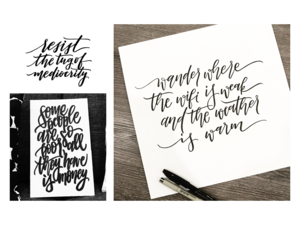 resist
the tug of
mediocrity.
some
people
are so
poor all
they have
is money
wander where
the wifi is weak
and the weather
is warm